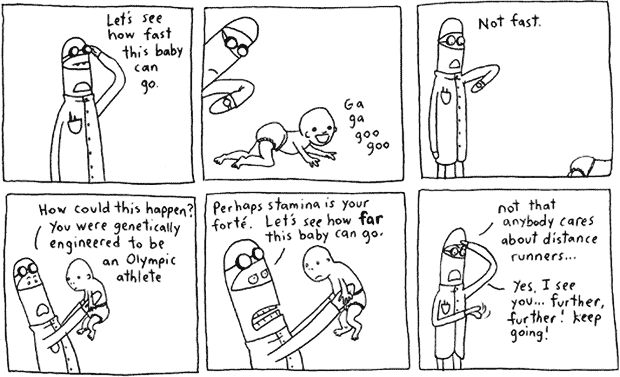 Let's see
how fast
this baby
can
go.
Ga
ga
goo
goo
Not fast.
How could this happen?
You were genetically
engineered to be
an Olympic
athlete
Perhaps stamina is your
forté. Let's see how far
this baby can go.
not that
anybody cares
about distance
runners...
Yes, I see
you... further,
further! keep
going!